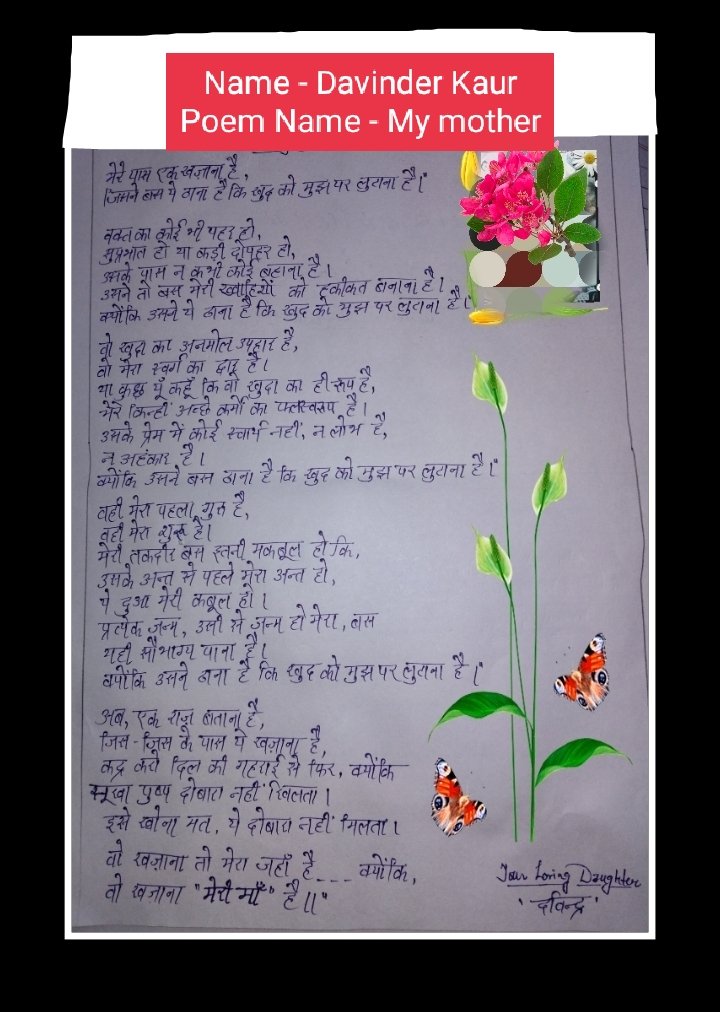 Name - Davinder Kaur
Poem Name - My mother
मेरे पास एक खज़ाना है,
जिसने बस ये ठाना है कि खुद को मुझ पर लुटाना है।"
वक्त का कोई भी पहर हो,
सुप्रभात हो या कड़ी दोपहर हो,
उसके पास न कभी कोई बहाना है।
उसने तो बस मेरी ख्वाहिशों को हकीकत बनाना है।
क्योंकि उसने ये ठाना है कि खुद को मुझ पर लुटाना है।"
वो खुदा का अनमोल उपहार है,
वो मेरा स्वर्ग का द्वार है।
या कुछ यूँ कहूँ कि वो खुदा का ही रूप है,
मेरे किन्हीं अच्छे कर्मों का फलस्वरूप है।
उसके प्रेम में कोई स्वार्थ नहीं, न लोभ है,
न अहंकार है।
क्योंकि उसने बस ठाना है कि खुद को मुझ पर लुटाना है।"
वही मेरा पहला गुरु है,
वही मेरा शुरू है।
मेरी तकदीर बस इतनी मकबूल हो कि,
उसके अन्त से पहले मेरा अन्त हो,
ये दुआ मेरी कबूल हो।
प्रत्येक जन्म, उसी से जन्म हो मेरा, बस
यही सौभाग्य पाना है।
क्योंकि उसने ठाना है कि खुद को मुझ पर लुटाना है।"
अब, एक राज़ बताना है,
जिस-जिस के पास ये खज़ाना है,
कद्र करो दिल की गहराई से फिर, क्योंकि
सूखा पुष्प दोबारा नहीं खिलता।
इसे खोना मत, ये दोबारा नहीं मिलता।
वो खज़ाना तो मेरा जहाँ है___ क्योंकि,
वो खज़ाना "मेरी माँ" है॥"
Your Loving Daughter
'दविन्द्र'